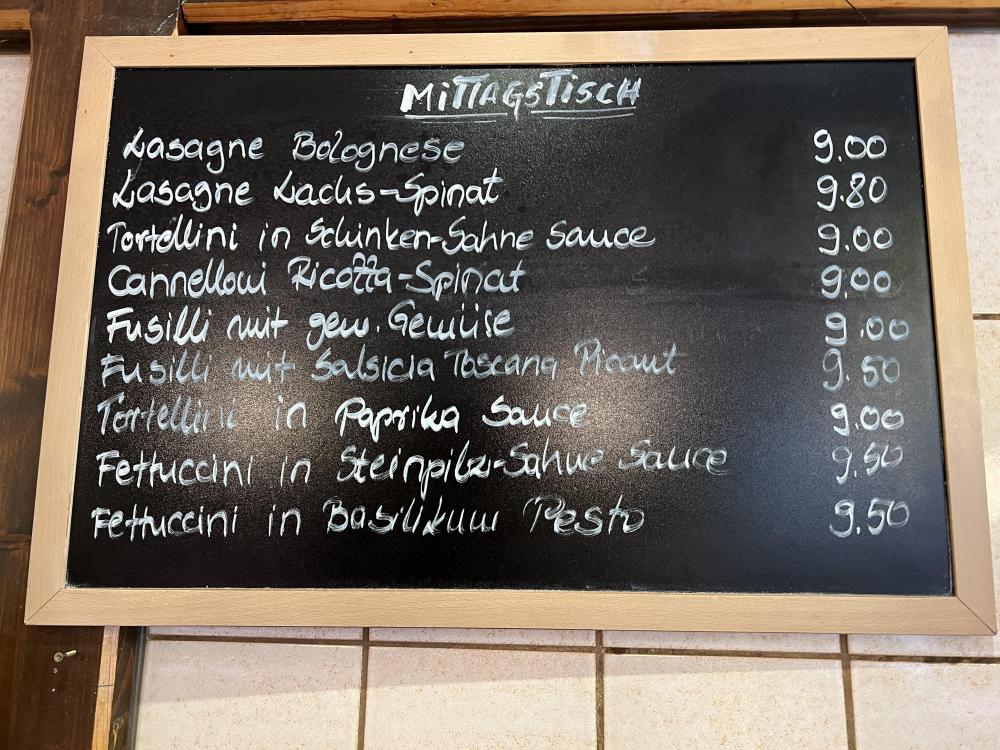 MITTAGSTISCH
Lasagne Bolognese 9.00
Lasagne Lachs-Spinat 9.80
Tortellini in Schinken-Sahne Sauce 9.00
Cannelloni Ricotta-Spinat 9.00
Fusilli mit gem. Gemüse 9.00
Fusilli mit Salsicia Toscana Picant 9.50
Tortellini in Paprika Sauce 9.00
Fettuccini in Steinpilz-Sahne Sauce 9.50
Fettuccini in Basilikum Pesto 9.50